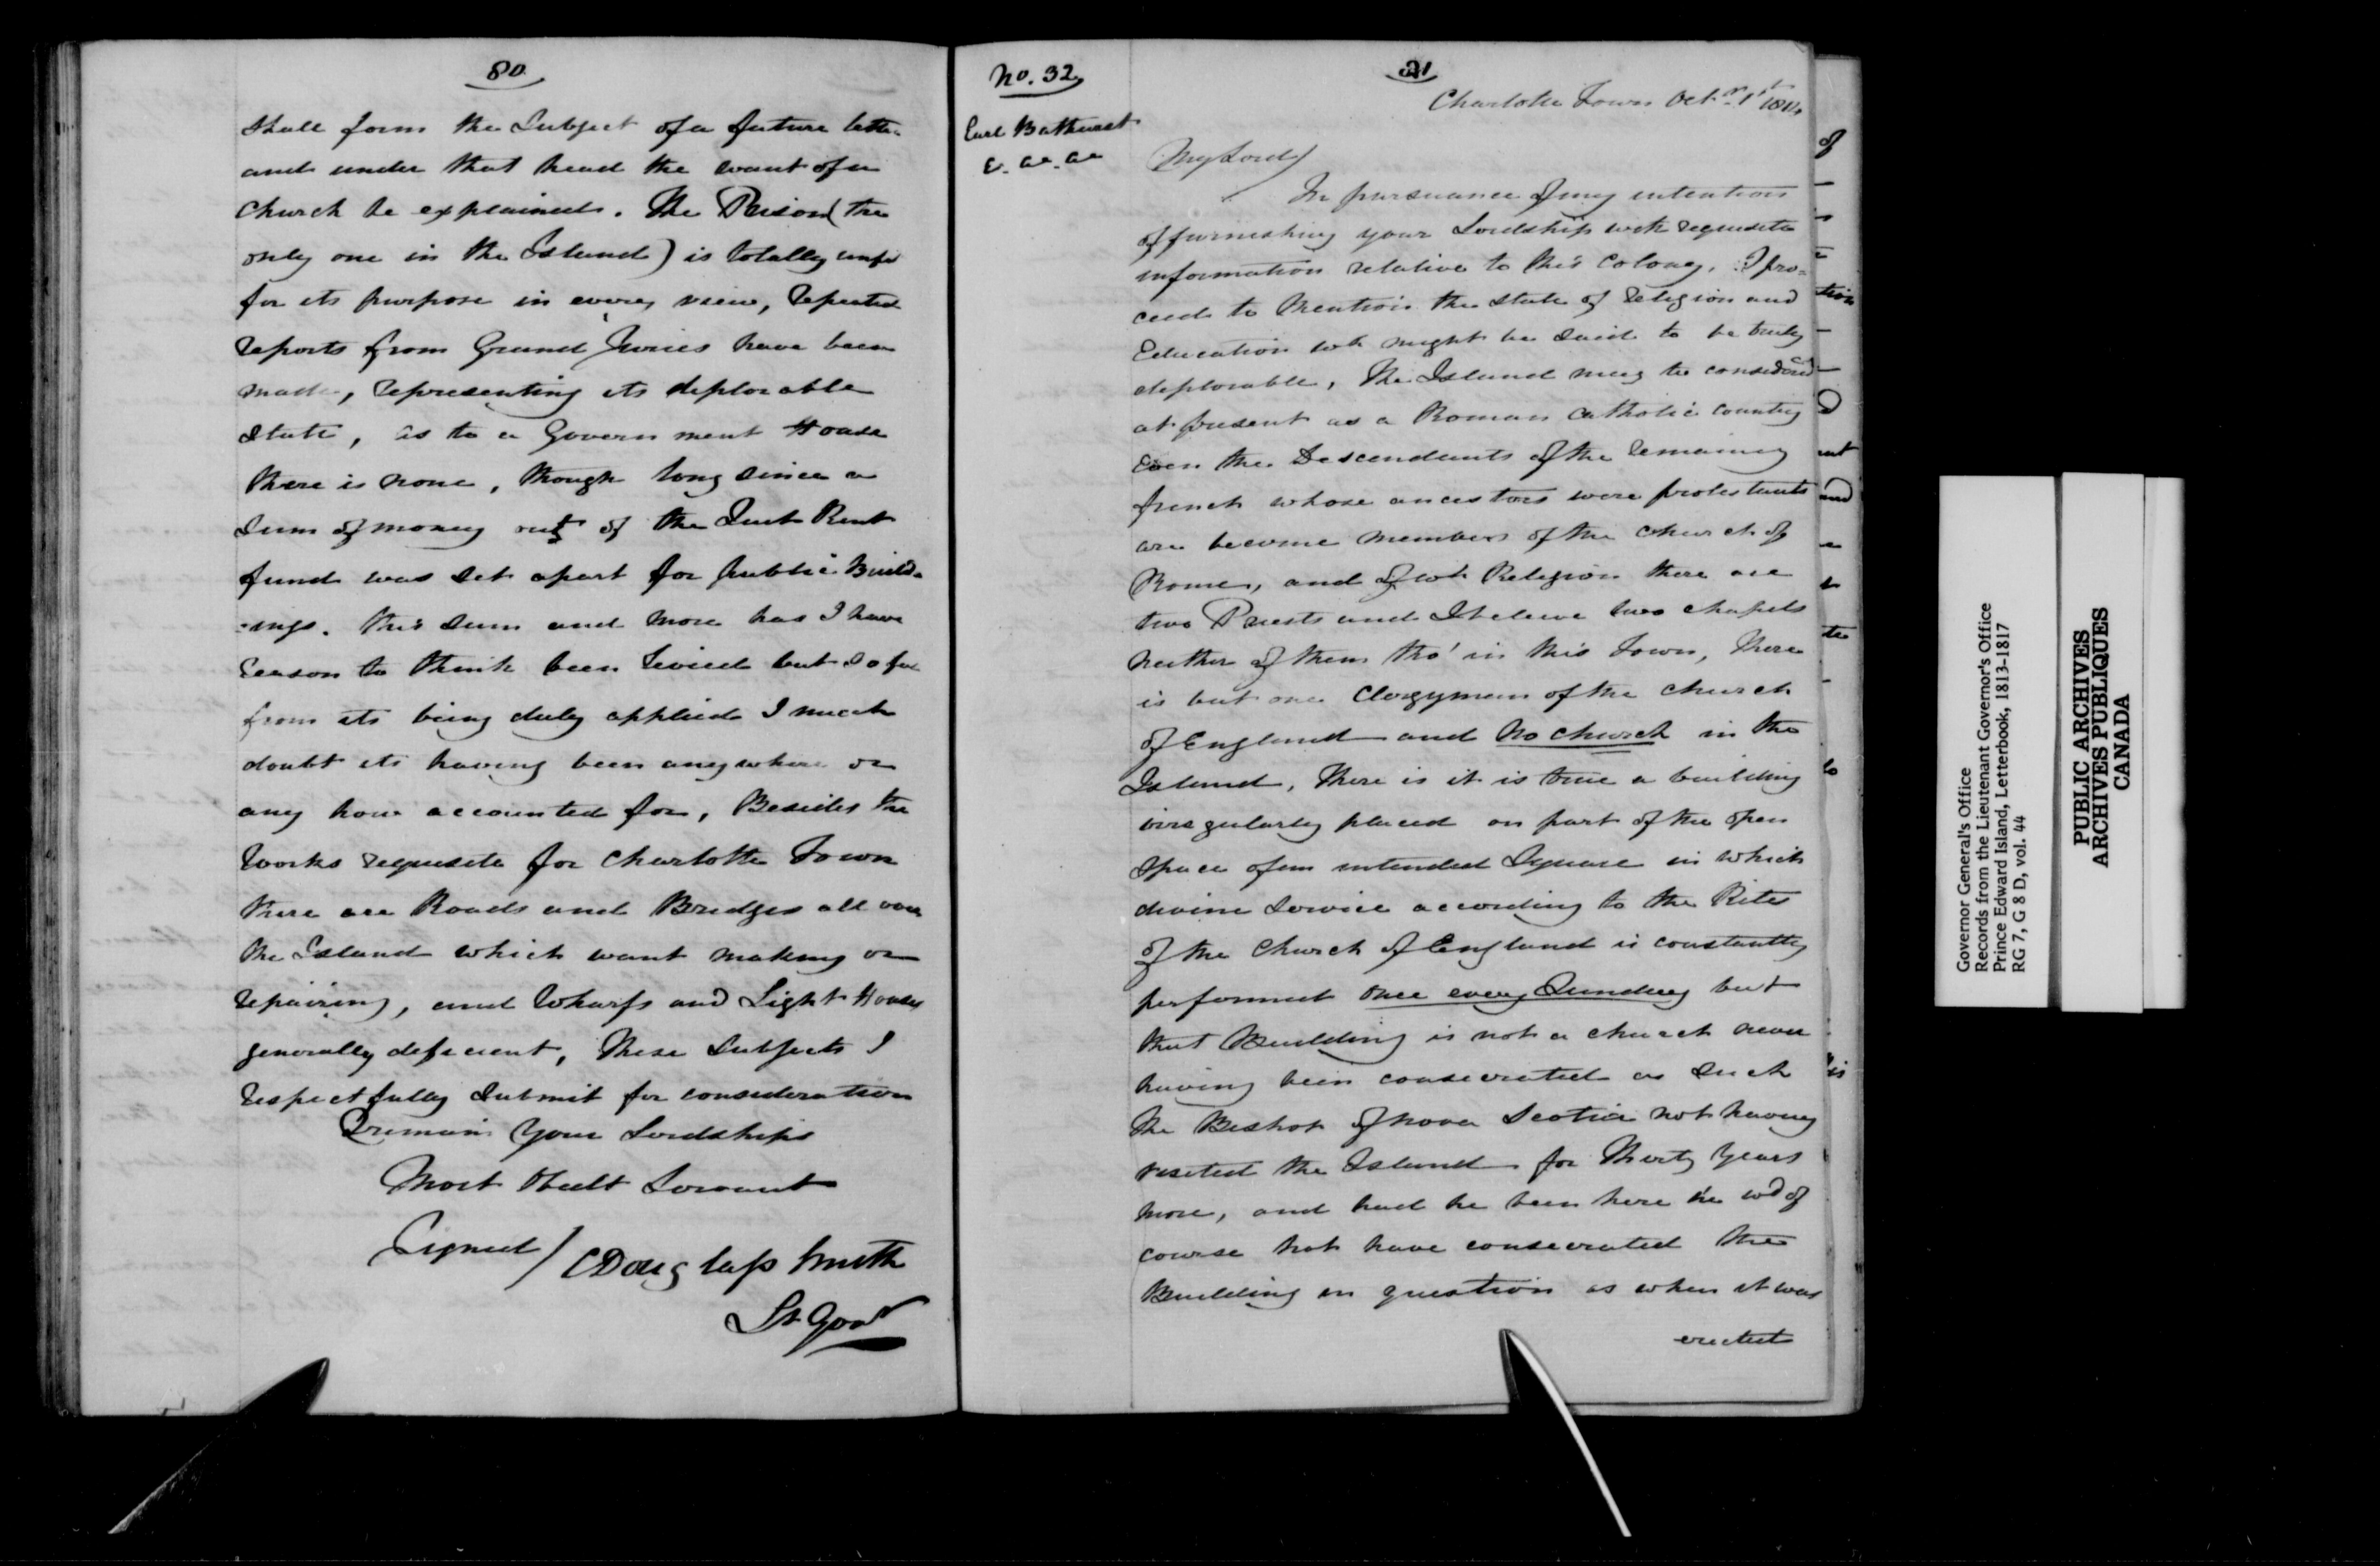 80
shall form the Subject of a future letter
and under that head the want of a
Church be explained. The Prison (the
only one in the Island) is totally unfit
for its purpose in every view, repeated
reports from Grand Juries have been
made, representing its deplorable
State, as to a Government House
there is none, though long since a
Sum of money out of the Quit Rent
fund was set apart for public Build-
-ings. this Sum and more has I have
reason to think been levied but so far
from its being duly applied I much
doubt its having been any where or
any how accounted for, Besides the
works requisite for Charlotte Town
there are Roads and Bridges all over
the Island which want making or
repairing, and Wharfs and Light Houses
generally deficient, These Subjects I
respectfully Submit for consideration
I remain Your Lordships
Most Obedt Servant
Signed / C Douglass Smith
Lt Govr
No. 32
Earl Bathurst
&. &c. &c
Charlotte Town Octr 1st 1814
My Lord/
In pursuance of my intention
of furnishing your Lordship with requisite
information relative to this Colony, I pro=
ceed to Mention the state of religion and
Education wh might be said to be truly
deplorable, The Island may be considered
at present as a Roman Catholic Country
Even the Descendants of the remaining
french whose ancestors were protestants
are become members of the Church of
Rome, and of wh Religion there are
two Priests and I beleive two chapels
neither of them tho' in this Town, There
is but one Clergyman of the Church
of England and no church in the
Island, There is it is true a building
irregularly placed on part of the open
Space of an intended Square in which
divine Service according to the Rites
of the Church of England is constantly
performed once every Sunday but
that Building is not a church never
having been consecrated as such
The Bishop of Nova Scotia not having
visited the Island for Thirty Years
more, and had he been here he wd of
course not have consecrated the
Building in question as when it was
erected
of
tion
and
to
is
Governor General's Office
Records from the Lieutenant Governor's Office
Prince Edward Island, Letterbook, 1813-1817
RG 7, G 8 D, vol. 44
PUBLIC ARCHIVES
ARCHIVES PUBLIQUES
CANADA